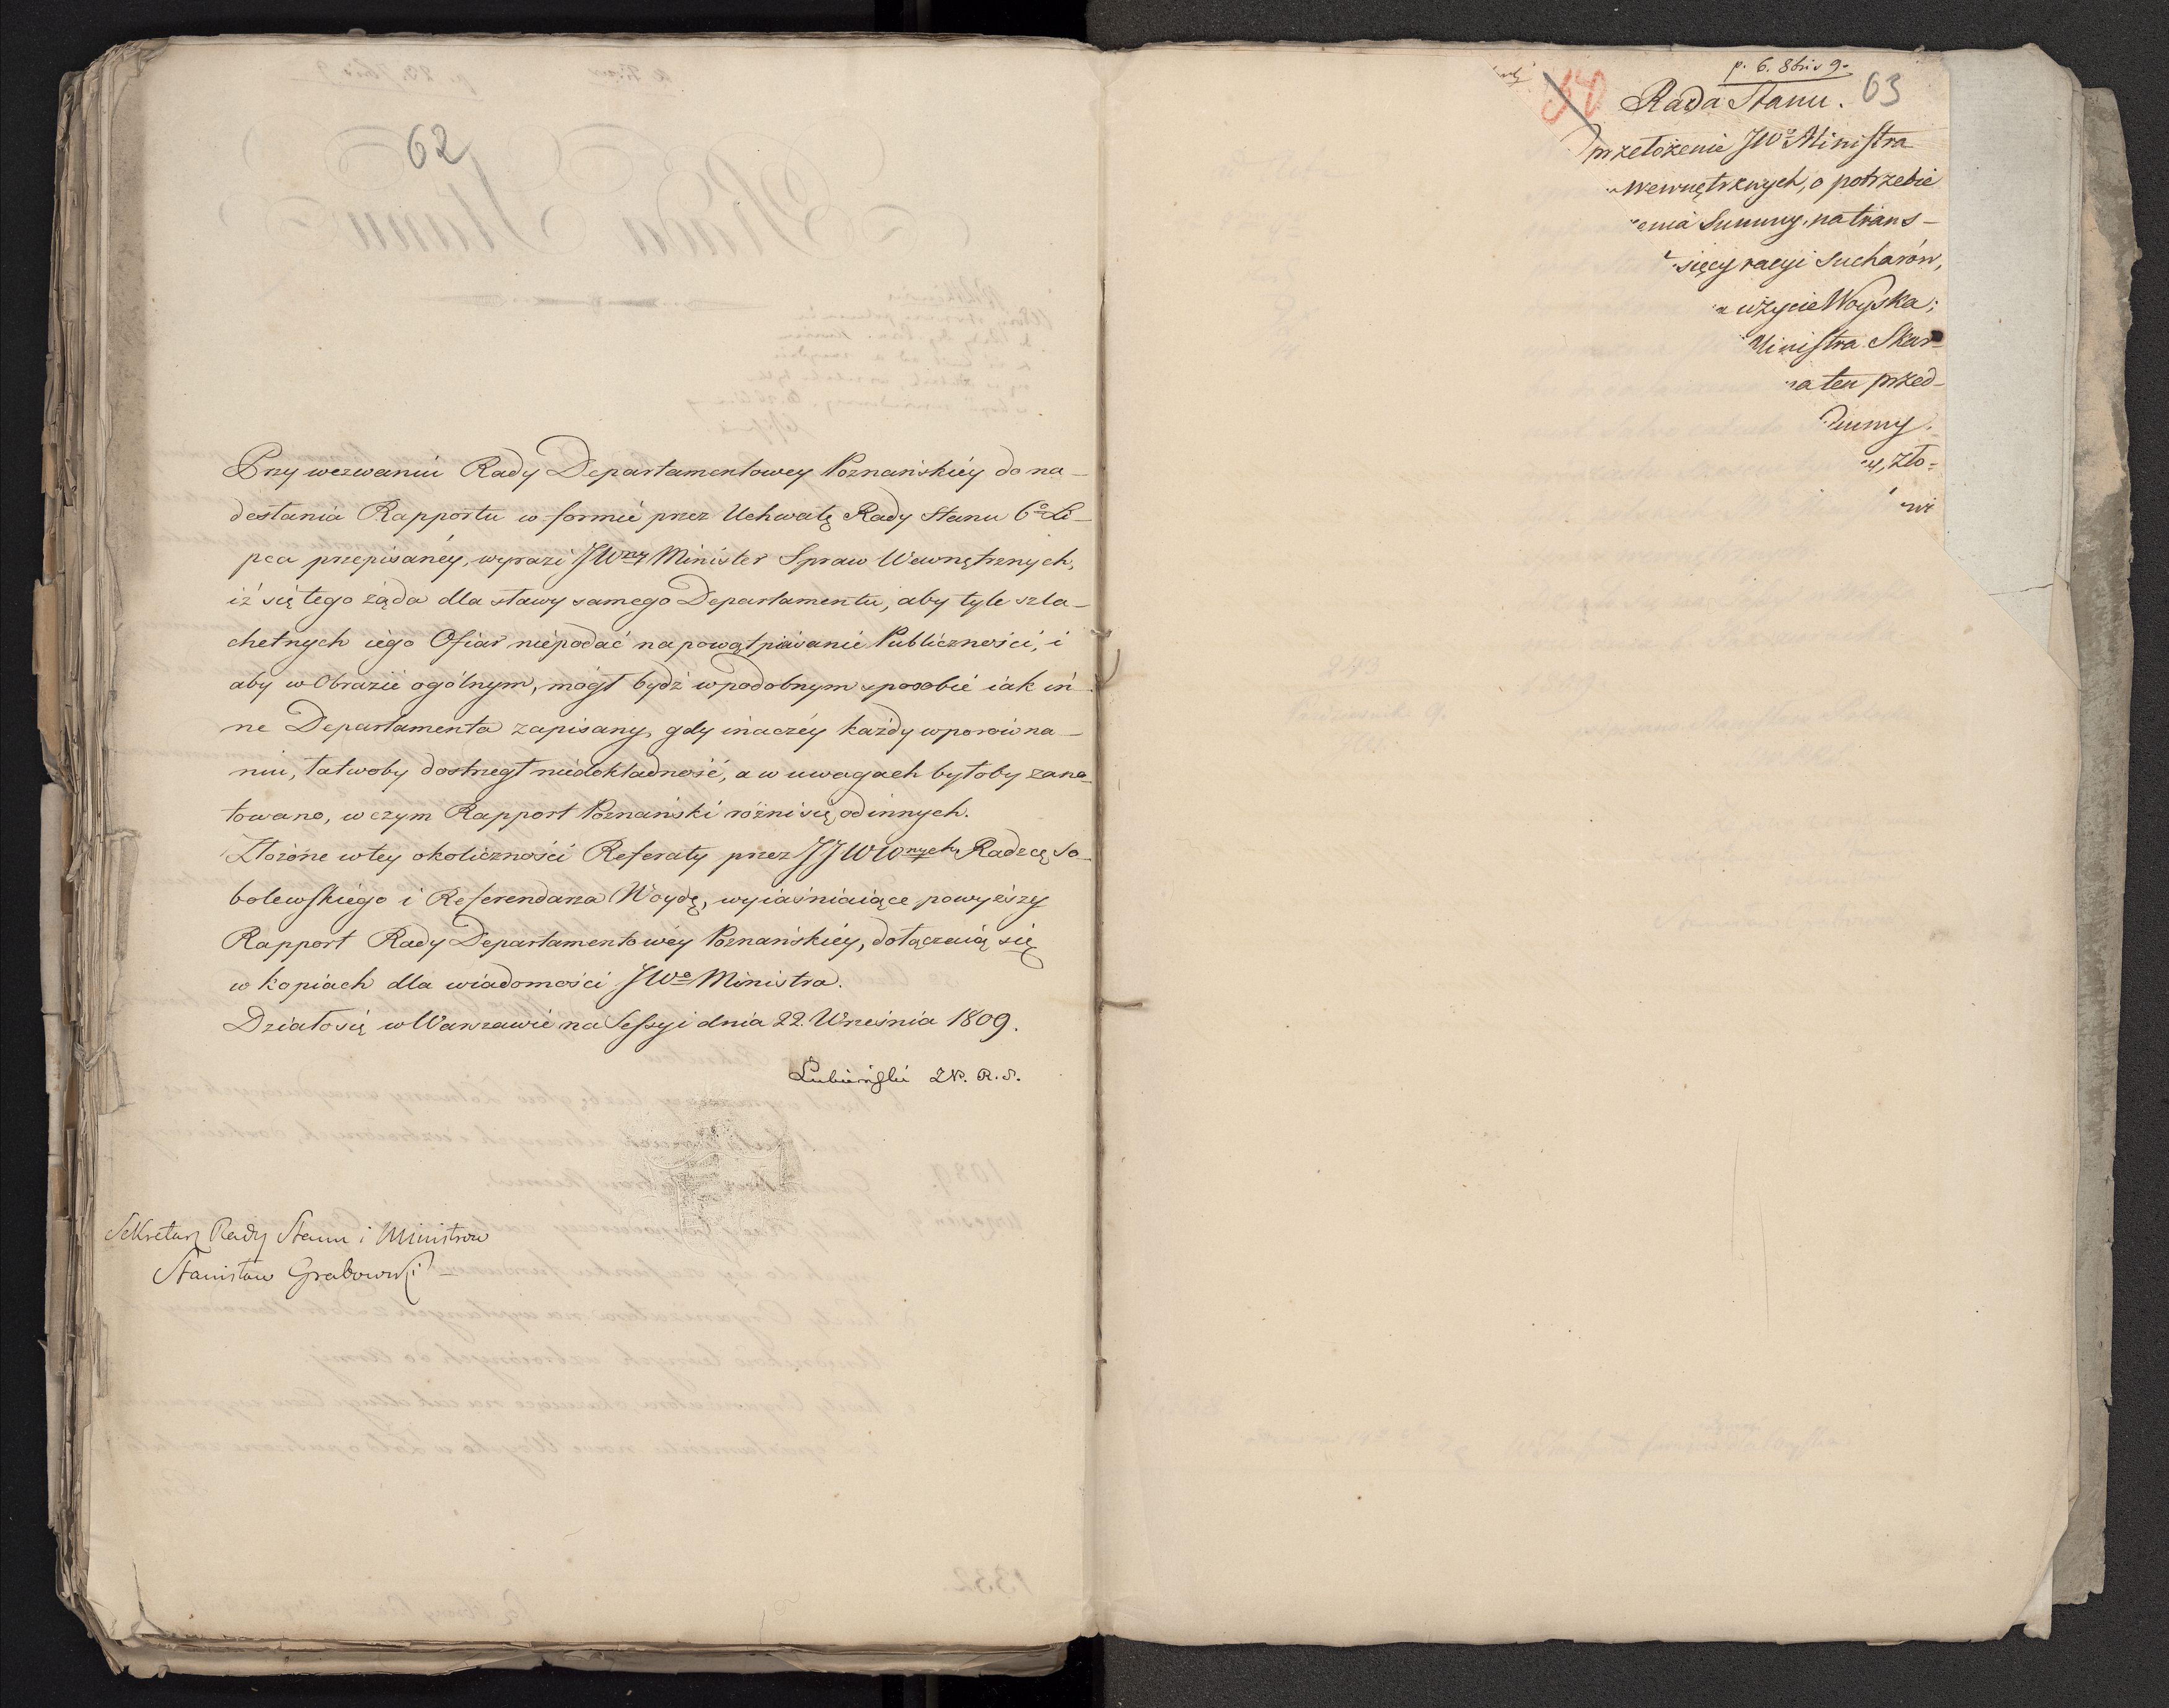 62
Przy wezwaniu Rady Departamentowey Poznańskiéy do na-
desłania Rapportu w formie przez Uchwałę Rady Stanu 6º Li-
pca przepisanéy, wyrazi JWny Minister Spraw Wewnętrznych,
iż się tego żąda dla sławy samego Departamentu, aby tyle szla-
chetnych iego Ofiar niepodać na powątpiewanie Publiczności, i
aby w Obrazie ogólnym, mógł bydź w podobnym sposobie iak in-
ne Departamenta zapisany, gdy inaczéy każdy w porówna-
niu, łatwoby dostrzegł niedokładność, a w uwagach byłoby zano-
towano, w czym Rapport Poznański różni się od innych.
Złożone w tey okoliczności Referaty przez JJWWnych Radzcę So-
bolewskiego i Referendarza Woydę, wyiaśniaiące powyższy
Rapport Rady Departamentowéy Poznańskiéy, dołączaią się
w kopiach dla wiadomości JWº Ministra.
Działo się w Warszawie na Sessyi dnia 22. Września 1809.
Łubieński ZP. R. S.
Sekretarz Rady Stanu i Ministrow
Stanisław Grabowski
p. 6. 8bris 9.
50
Rada Stanu.
63
przełożenie JWº Ministra
Wewnętrznych, o potrzebie
enia Summy, na trans-
sięcy racyi Sucharów,
użycie Woyska;
Ministra Skar-
a ten przed-
Summy.
zło-